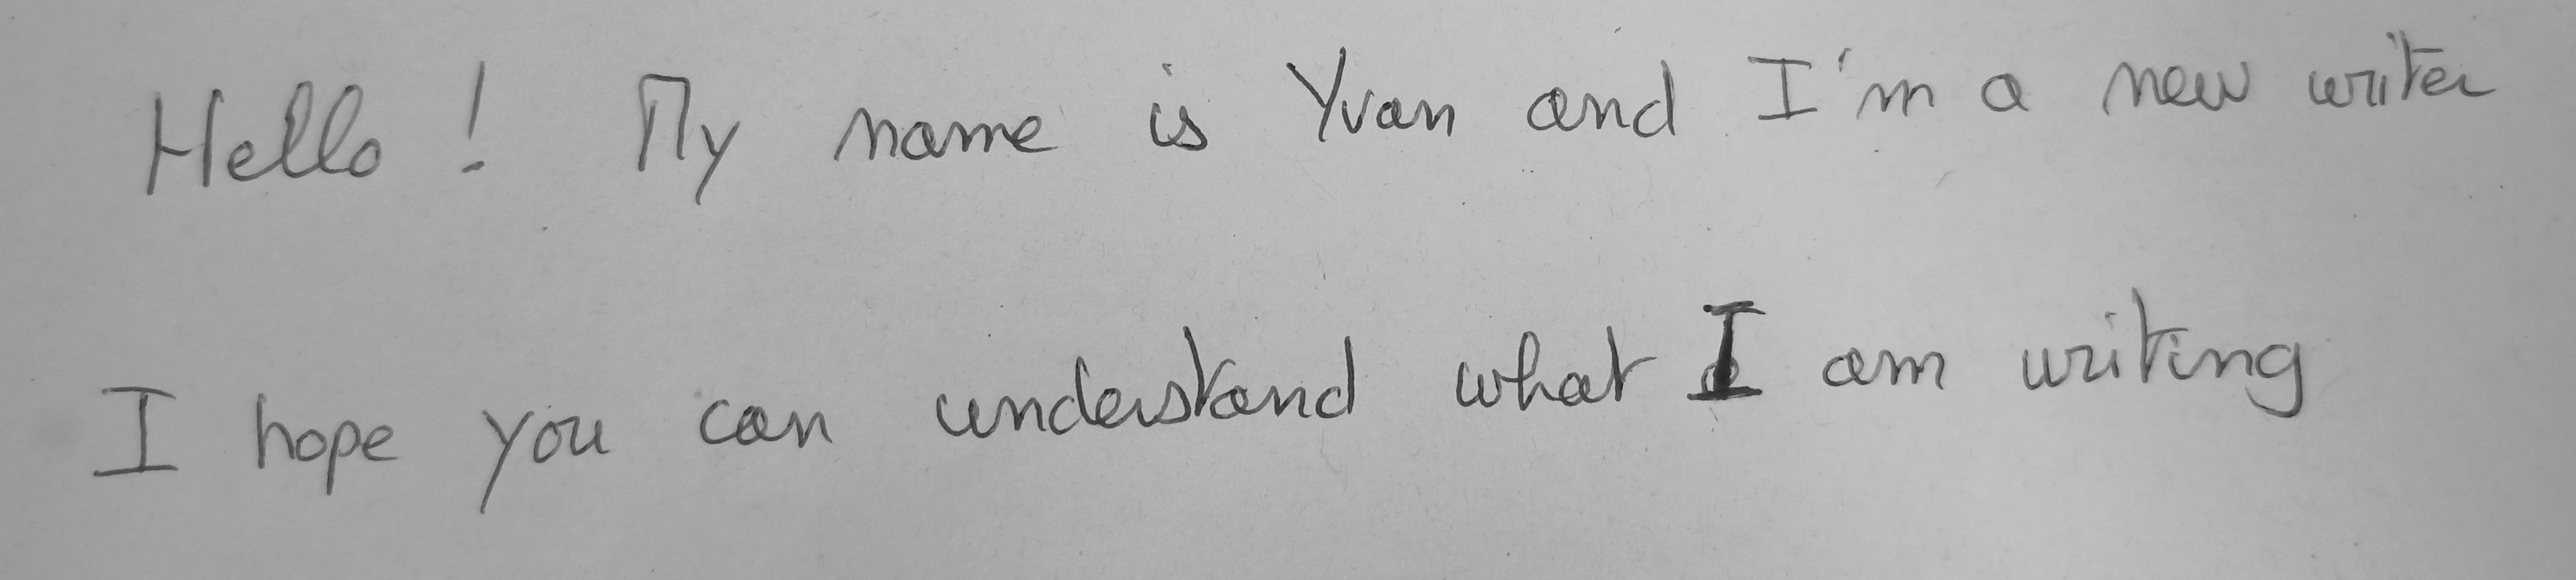 Hello ! My name is Yvan and I'm a new writer
I hope you can understand what I am writing